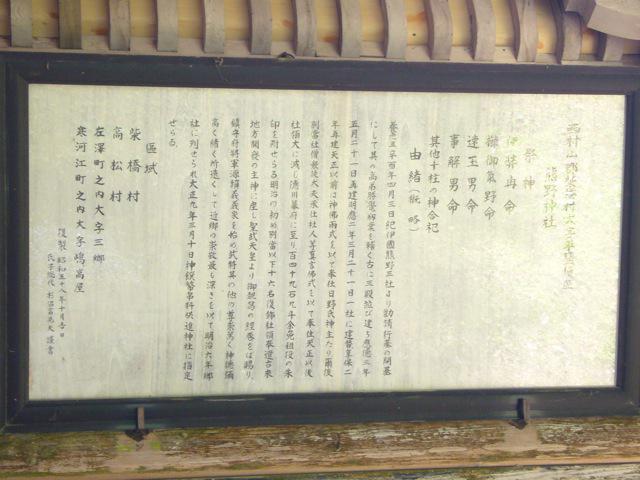 熊野神社
祭神
伊弉冉命
櫛御氣野命
速玉男命
事解男命
其他十柱の神合祀
由緒(概略)
養老五辛酉年四月三日紀伊國熊野三社より勧請行基の開基
にして其の高弟勝覺病叟を輔く古に三殿並び建ち應德三年
五月二十一日再建明應二年三月二十一日一社に建替享保二
年再建天正以前は神佛兩式を以て奉仕日野氏神主たり爾後
別當社僧最上大夫承仕社人等眞言佛式を以て奉仕天正以後
社領大に減じ德川幕府に至り百四十九石九斗余免租役の朱
印を附せらる明治の初め別當以下十六名復飾社領奉還古来
地方開発の主神に座し聖武天皇より御親筆の經巻をば賜り
鎮守府将軍源頼義義家を始め武将其の他の尊崇篤く神徳彌
高く績く所遠くして近郷の崇敬最も深きを以て明治六年郷
社に列せられ大正九年三月十日神饌幣帛料供進神社に指定
せらる
區域
柴橋村
高松村
左澤町之内大字三郷
寒河江町之内大字嶋高屋
復製 昭和五十八年十月吉日
氏子総代
謹書